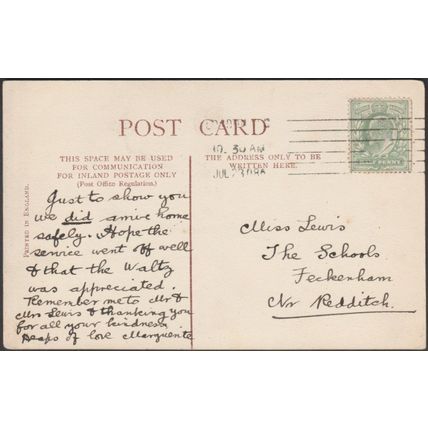 POST CARD
THIS SPACE MAY BE USED
FOR COMMUNICATION
FOR INLAND POSTAGE ONLY
(Post Office Regulation.)
THE ADDRESS ONLY TO BE
WRITTEN HERE.
PRINTED IN ENGLAND.
10.30AM
JUL
Just to show you
we did arrive home
safely. Hope the
service went off well
& that the Waltz
was appreciated.
Remember me to Mr &
Mrs Lewis & thanking you
for all your kindness
Heaps of love Marguerite
Miss Lewis
The Schools
Feckenham
Nr Redditch.